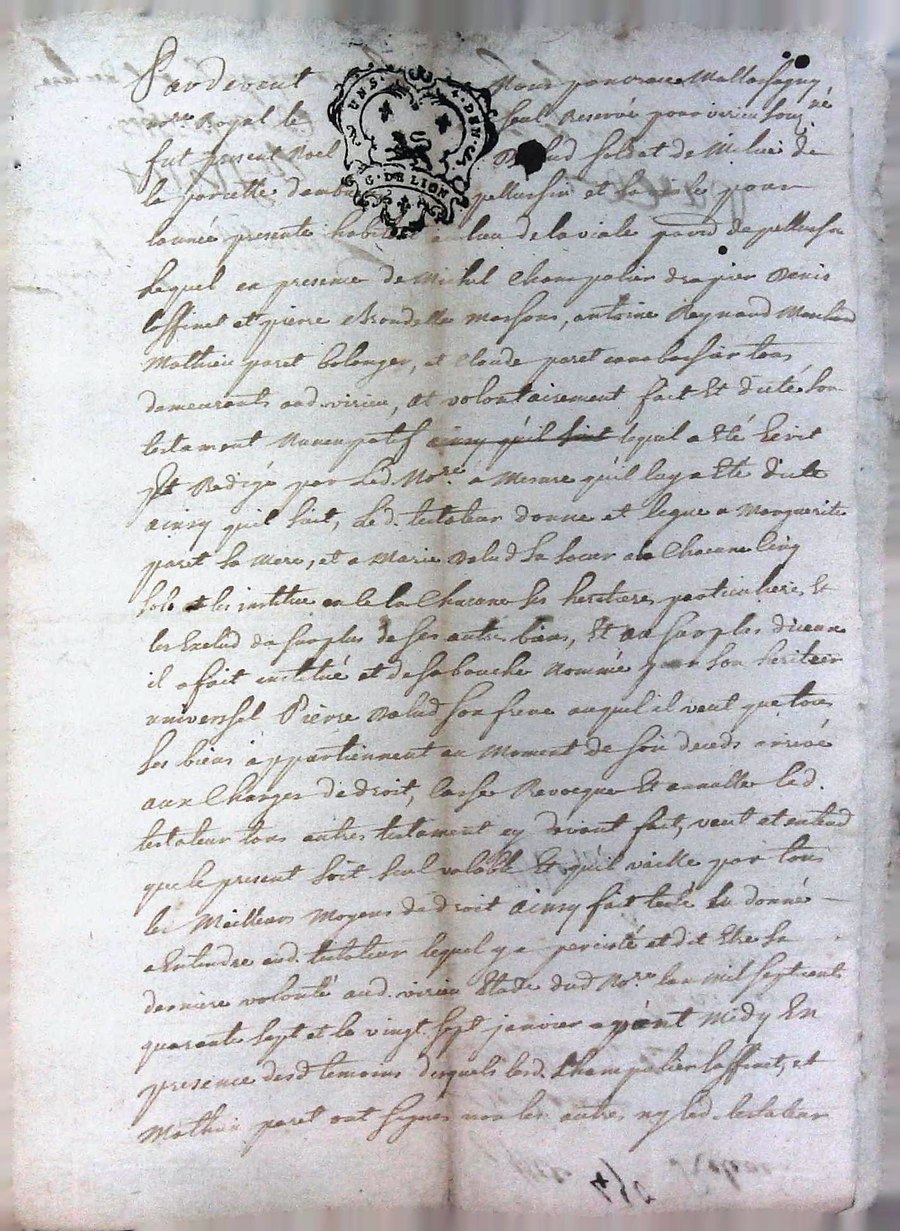 Pardevent Nous pancrace Mallassagny
n.re Royal le seul Reservé pour virieu sousig.né
fut present Noel Balud soldat de Milice de
la parcelle pellussin et pour
lannée presente habitant au lieu de la viale parr.d de pellussin
Lequel en presence de Michel Champalier drapier Denis
Lessinet et pierre Massons, antoine Reynaud Marchand
Mathieu paret bolanger, et Claude paret tous
demeurants aud. virieu, at volontairement fait Et dicté son
testament Nuncupatif ainsy qu'il suit lequel a Eté Ecrit
Et Redigé par Led. No.re a Mesure qu'il luy a Eté dicté
ainsy qu'il suit, Led. testateur donne et legue a Marguerite
paret sa Mere, et a Marie Balud sa soeur a Chacune Cinq
sols et les institue en cela Chacune ses heritieres particulieres Et
les Exclud du surplus de ses autres biens, Et au surplus diceux
il a fait institué et de sa bouche Nommé pour son heritier
universel Pierre Balud son frere auquel il veut que tous
ses biens appartiennent au Moment de son deceds arrivé
aux Charges de droit, Casse Revocque Et annulle led.
testateur tous autres testament cy devant fait, veut et entend
que le present soit seul valable Et qu'il vaille par tous
les Meilleurs Moyens de droit ainsy fait leu donné
a Entendre aud. testateur lequel y a persisté et dit Etre sa
derniere volonté aud. virieu Etude dud. No.re lan Mil sept cent
quarante sept et le vingt sept janvier apront Midy En
presence desd. temoins desquels lesd. Champalier Lessinet, et
Mathieu paret ont signés non les autres ny led. testateur
2 UNS. 4. DEN
G. DE LION